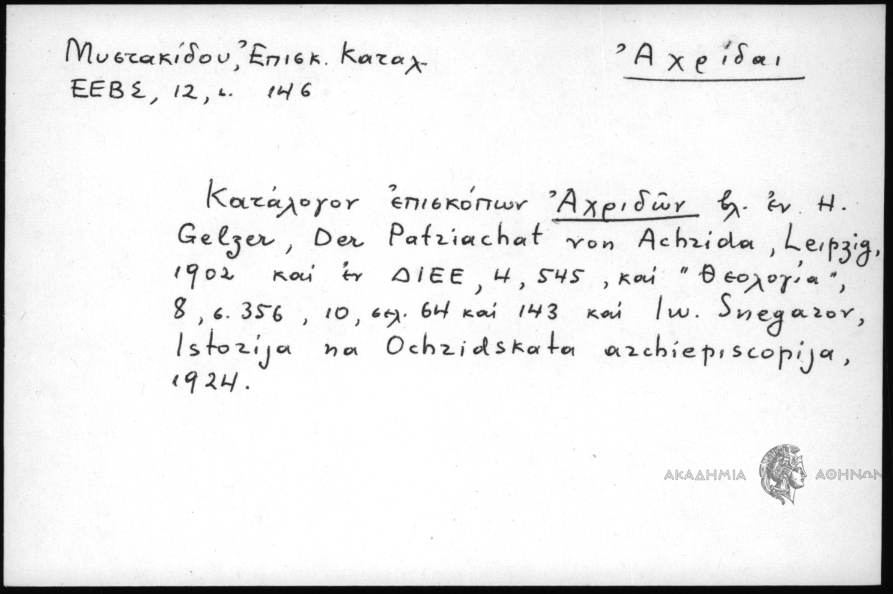 Μυστακίδου, Ἐπισκ. Καταλ.
ΕΕΒΣ, 12, σ. 146
Ἀχρίδαι
Κατάλογον ἐπισκόπων Ἀχριδῶν βλ. ἐν H.
Gelzer, Der Patriachat von Achrida, Leipzig,
1902 καί ἐν ΔΙΕΕ, 4, 545, καί "Θεολογία",
8, σ. 356, 10, σελ. 64 καί 143 καί Iw. Snegarov,
Istorija na Ochridskata archiepiscopija,
1924.
ΑΚΑΔΗΜΙΑ ΑΘΗΝΩΝ